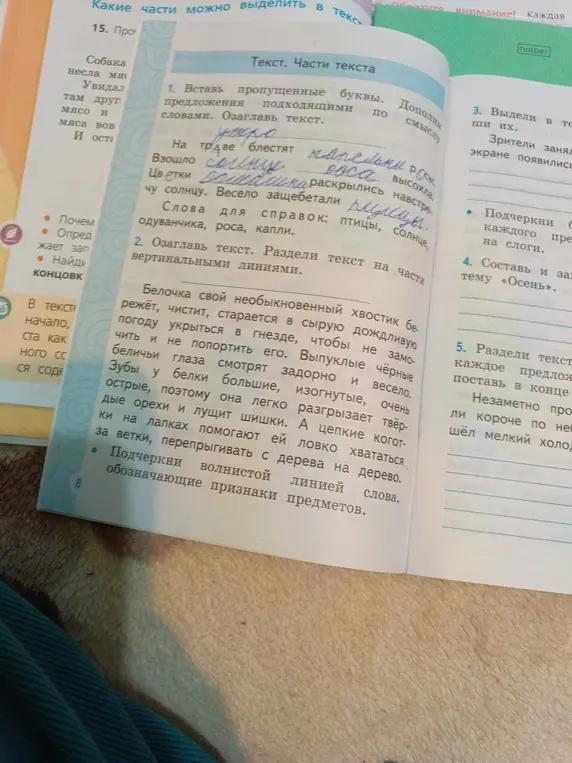 Какие части можно выделить в текс
15. Про
Собака
несла мя
Увидал
там друг
мясо и
мяса вов
И оста
Почем
Опред
жает заг
Найди
концовк
В текст
начало,
ста как
ного со
ся соде
Обратите внимание! Каждая
hatber
Текст. Части текста
1. Вставь пропущенные буквы. Дополни
предложения подходящими по смыслу
словами. Озаглавь текст.
утро
На траве блестят капельки росы.
Взошло солнце роса высохла.
Цветки раскрылись навстре-
чу солнцу. Весело защебетали птицы.
Слова для справок: птицы, солнце,
одуванчика, роса, капли.
2. Озаглавь текст. Раздели текст на части
вертикальными линиями.
Белочка свой необыкновенный хвостик бе-
режёт, чистит, старается в сырую дождливую
погоду укрыться в гнезде, чтобы не замо-
чить и не попортить его. Выпуклые чёрные
беличьи глаза смотрят задорно и весело.
Зубы у белки большие, изогнутые, очень
острые, поэтому она легко разгрызает твёр-
дые орехи и лущит шишки. А цепкие когот-
ки на лапках помогают ей ловко хвататься
за ветки, перепрыгивать с дерева на дерево.
• Подчеркни волнистой линией слова,
обозначающие признаки предметов.
8
3. Выдели в те
ши их.
Зрители занял
экране появились
• Подчеркни б
каждого пре
на слоги.
4. Составь и за
тему «Осень».
5. Раздели текст
каждое предлож
поставь в конце
Незаметно про
ли короче по неб
шёл мелкий холод